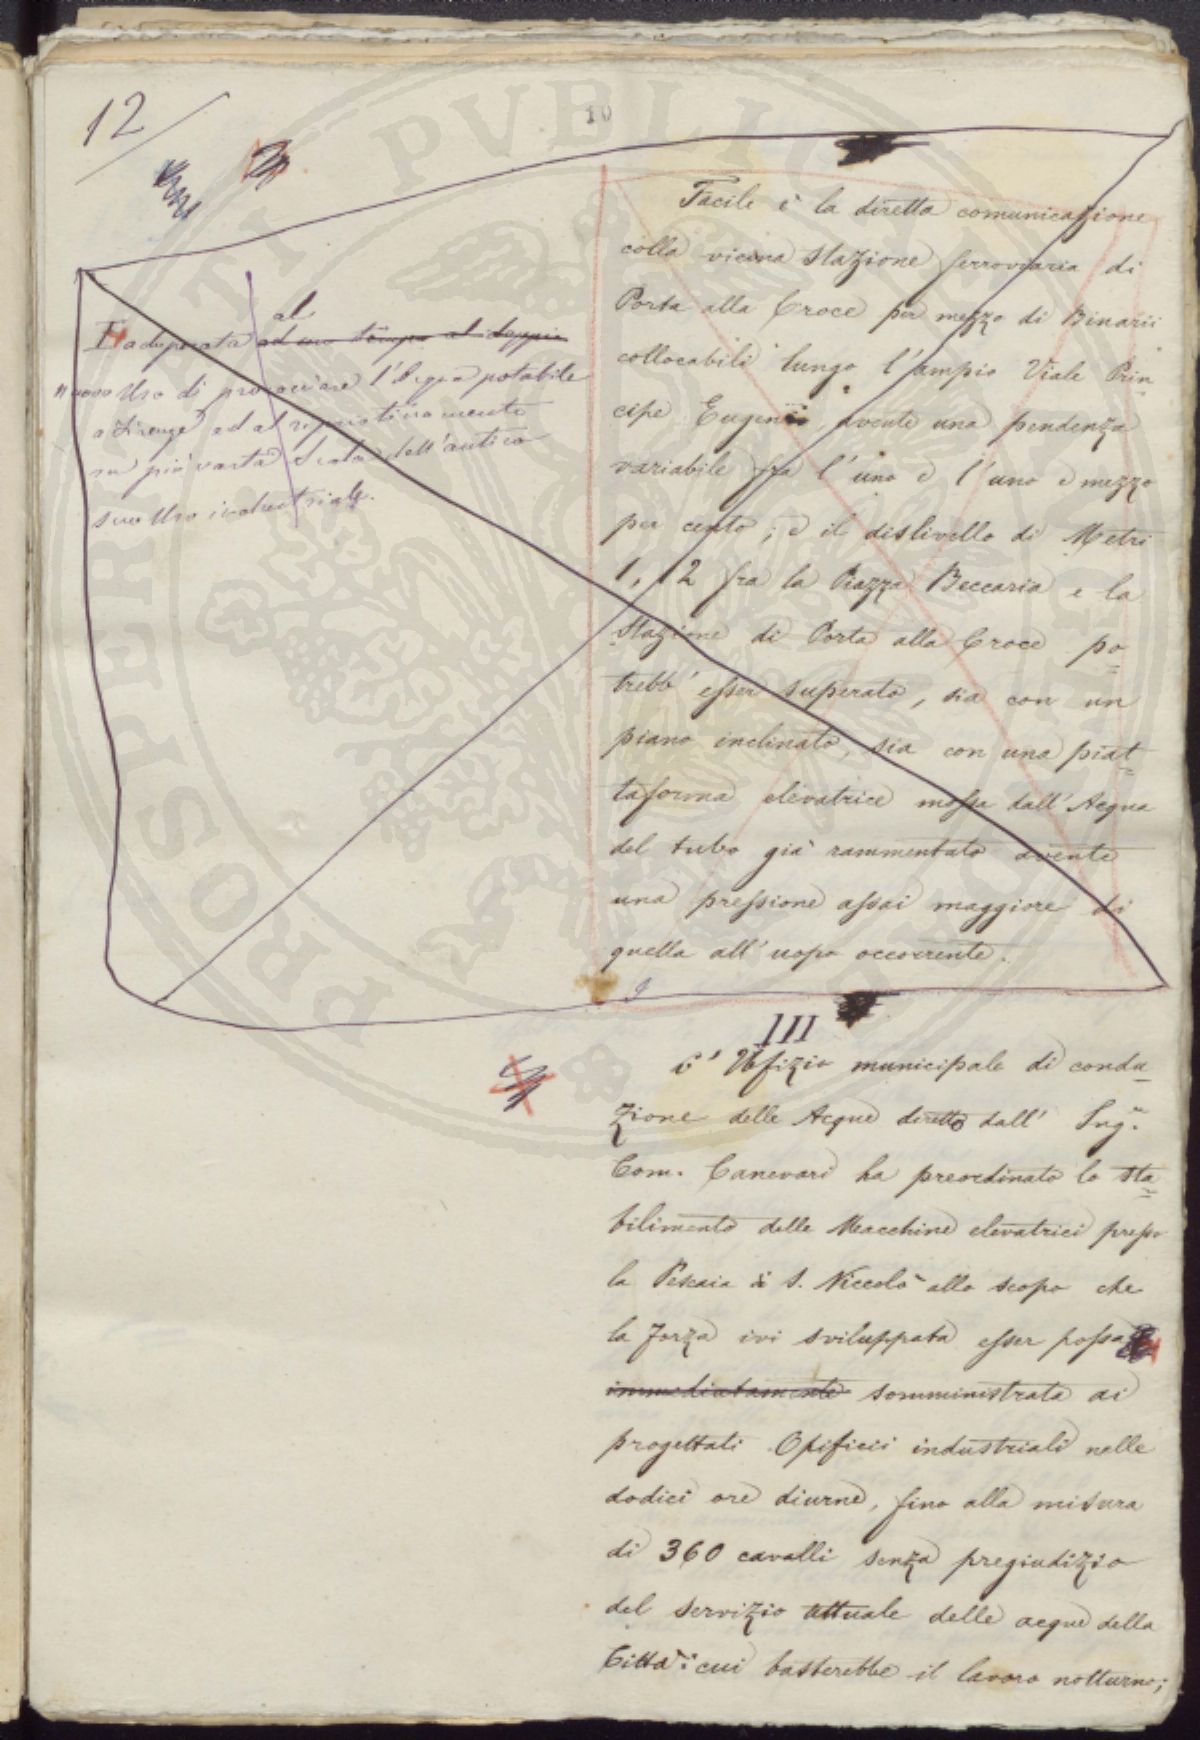 12
10
Facile è la diretta comunicazione
colla vicina Stazione ferroviaria di
Porta alla Croce per mezzo di Binarii
collocabili lungo l'ampio Viale Prin
cipe Eugenio, avente una pendenza
variabile fra l'uno e l'uno e mezzo
per cento; e il dislivello di Metri
1,12 fra la Piazza Beccaria e la
Stazione di Porta alla Croce po=
trebb' esser superato, sia con un
piano inclinato, sia con una piat=
taforma elevatrice mossa dall'Acqua
del tubo già rammentato avente
una pressione assai maggiore di
quella all'uopo occorrente.
adoperata al ad uno tempo al doppio
nuovo Uso di provocciare l'Acqua potabile
a Firenze ed al ripristinamento
su più vasta scala dell'antico
suo Uso industriale.
III
L'Uffizio municipale di condu=
zione delle Acque diretto dall' Ing.
Com. Canevari ha preordinato lo sta=
bilimento delle Macchine elevatrici presso
la Pescaia di S. Niccolò allo scopo che
la Forza ivi sviluppata esser possa
immediatamente somministrata ai
progettati Opificii industriali nelle
dodici ore diurne, fino alla misura
di 360 cavalli senza pregiudizio
del servizio attuale delle acque della
Città: cui basterebbe il lavoro notturno;
PROSPERITATI PVBLICAE